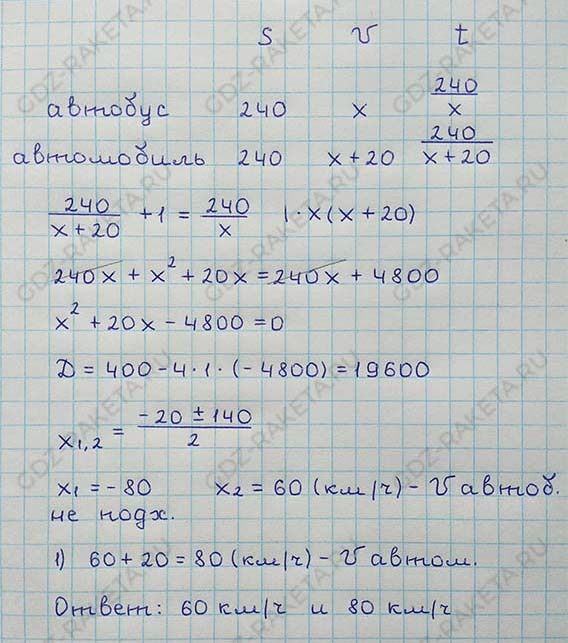 S V t
автобус 240 x 240/x
автомобиль 240 x+20 240/(x+20)
240/(x+20) +1 = 240/x |·x(x+20)
240x + x² + 20x = 240x + 4800
x² + 20x - 4800 = 0
D = 400 - 4·1·(-4800) = 19600
x₁,₂ = (-20 ± 140)/2
x₁ = -80 x₂ = 60 (км/ч) - V автоб.
не подх.
1) 60 + 20 = 80 (км/ч) - V автом.
Ответ: 60 км/ч и 80 км/ч
GDZ-RAKETA.RU